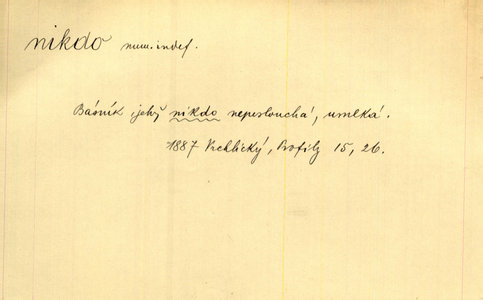 nikdo num. indef.
Básník jehož nikdo neposlouchá, umlká.
1887 Vrchlický, Profily 15, 26.